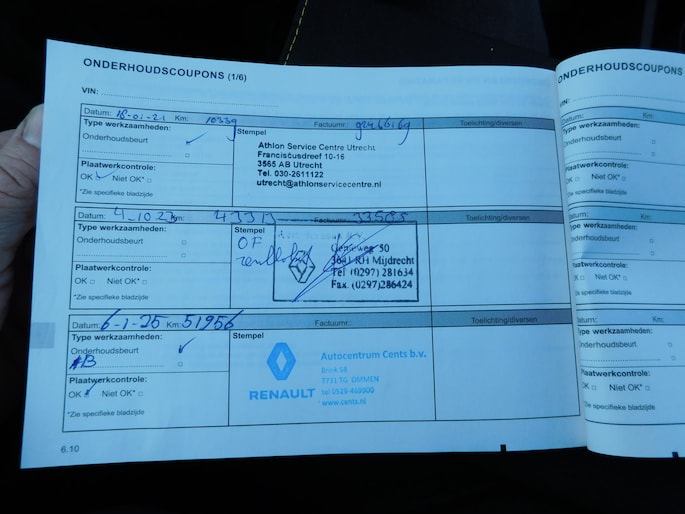 ONDERHOUDSCOUPONS (1/6)
VIN:
Datum: 18-01-21 Km: 10339 Factuurnr.: Toelichting/diversen
Type werkzaamheden:
Onderhoudsbeurt
Stempel
Athlon Service Centre Utrecht
Franciscusdreef 10-16
3565 AB Utrecht
Tel. 030-2611122
utrecht@athlonservicecentre.nl
Plaatwerkcontrole:
OK Niet OK*
*Zie specifieke bladzijde
Datum: 4-10-23 Km: 43313 Factuurnr.: Toelichting/diversen
Type werkzaamheden:
Onderhoudsbeurt
Stempel
OF
50
3641 RH Mijdrecht
Tel (0297) 281634
Fax. (0297)286424
Plaatwerkcontrole:
OK Niet OK*
*Zie specifieke bladzijde
Datum: 6-1-25 Km: 51956 Factuurnr.: Toelichting/diversen
Type werkzaamheden:
Onderhoudsbeurt
B
Stempel
RENAULT
Autocentrum Cents b.v.
Brink 58
7731 TG OMMEN
tel 0529-469000
www.cents.nl
Plaatwerkcontrole:
OK Niet OK*
*Zie specifieke bladzijde
6.10
ONDERHOUDSCOUPONS
VIN:
Datum: Km:
Type werkzaamheden:
Onderhoudsbeurt
Plaatwerkcontrole:
OK Niet OK*
*Zie specifieke bladzijde
Datum: Km:
Type werkzaamheden:
Onderhoudsbeurt
Plaatwerkcontrole:
OK Niet OK*
*Zie specifieke bladzijde
Datum: Km:
Type werkzaamheden:
Onderhoudsbeurt
Plaatwerkcontrole:
OK Niet OK*
*Zie specifieke bladzijde